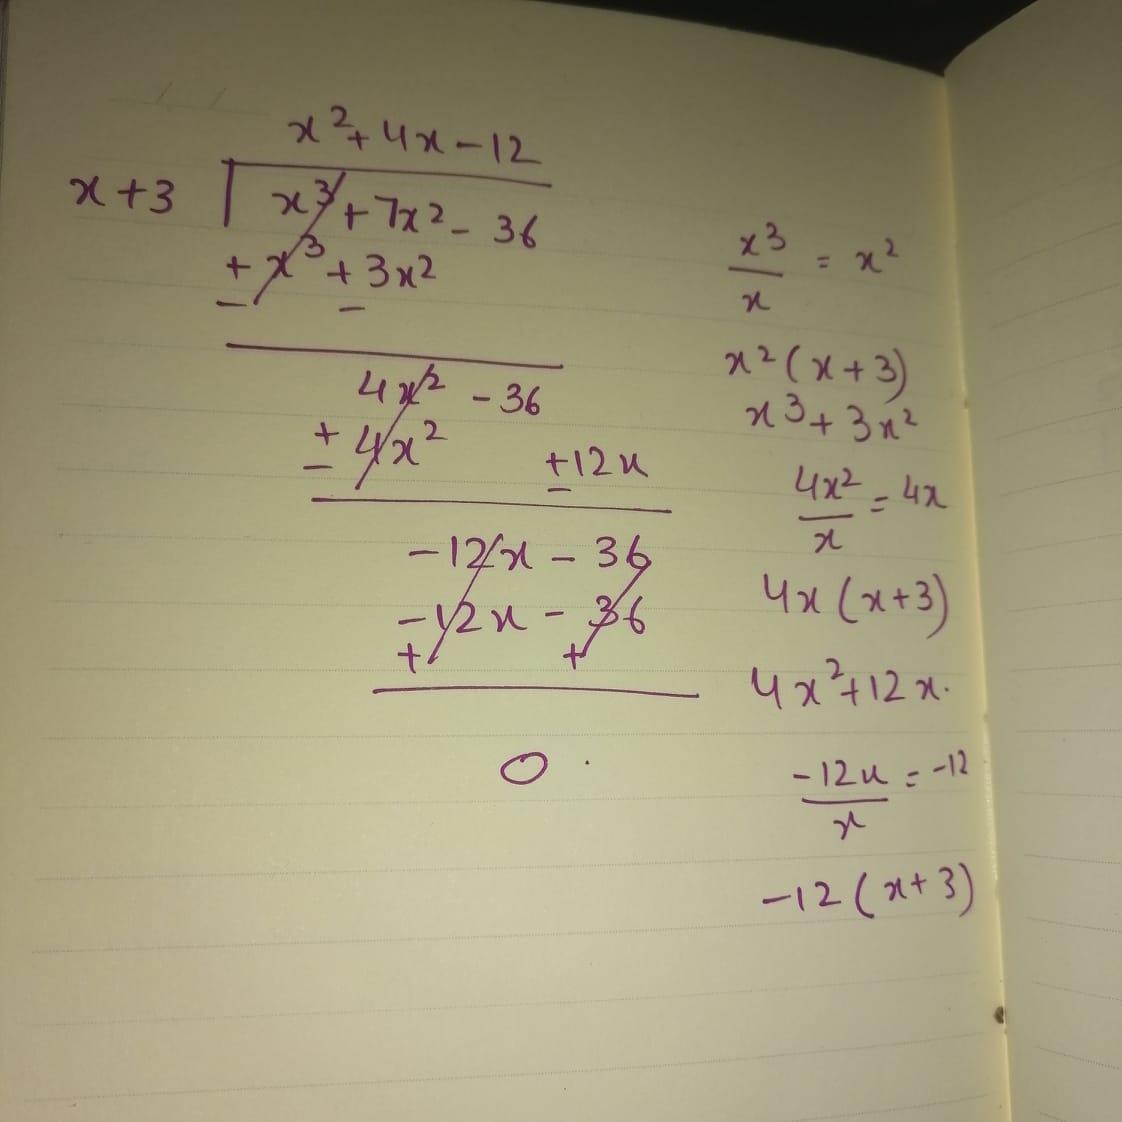 x² + 4x - 12
x + 3 | x³ + 7x² - 36
+ x³ + 3x²
- -
4x² - 36
+ 4x² +12x
- -
-12x - 36
-12x - 36
+ +
0 .
x³/x = x²
x² (x + 3)
x³ + 3x²
4x²/x = 4x
4x (x+3)
4x² + 12x.
-12x/x = -12
-12 (x + 3)